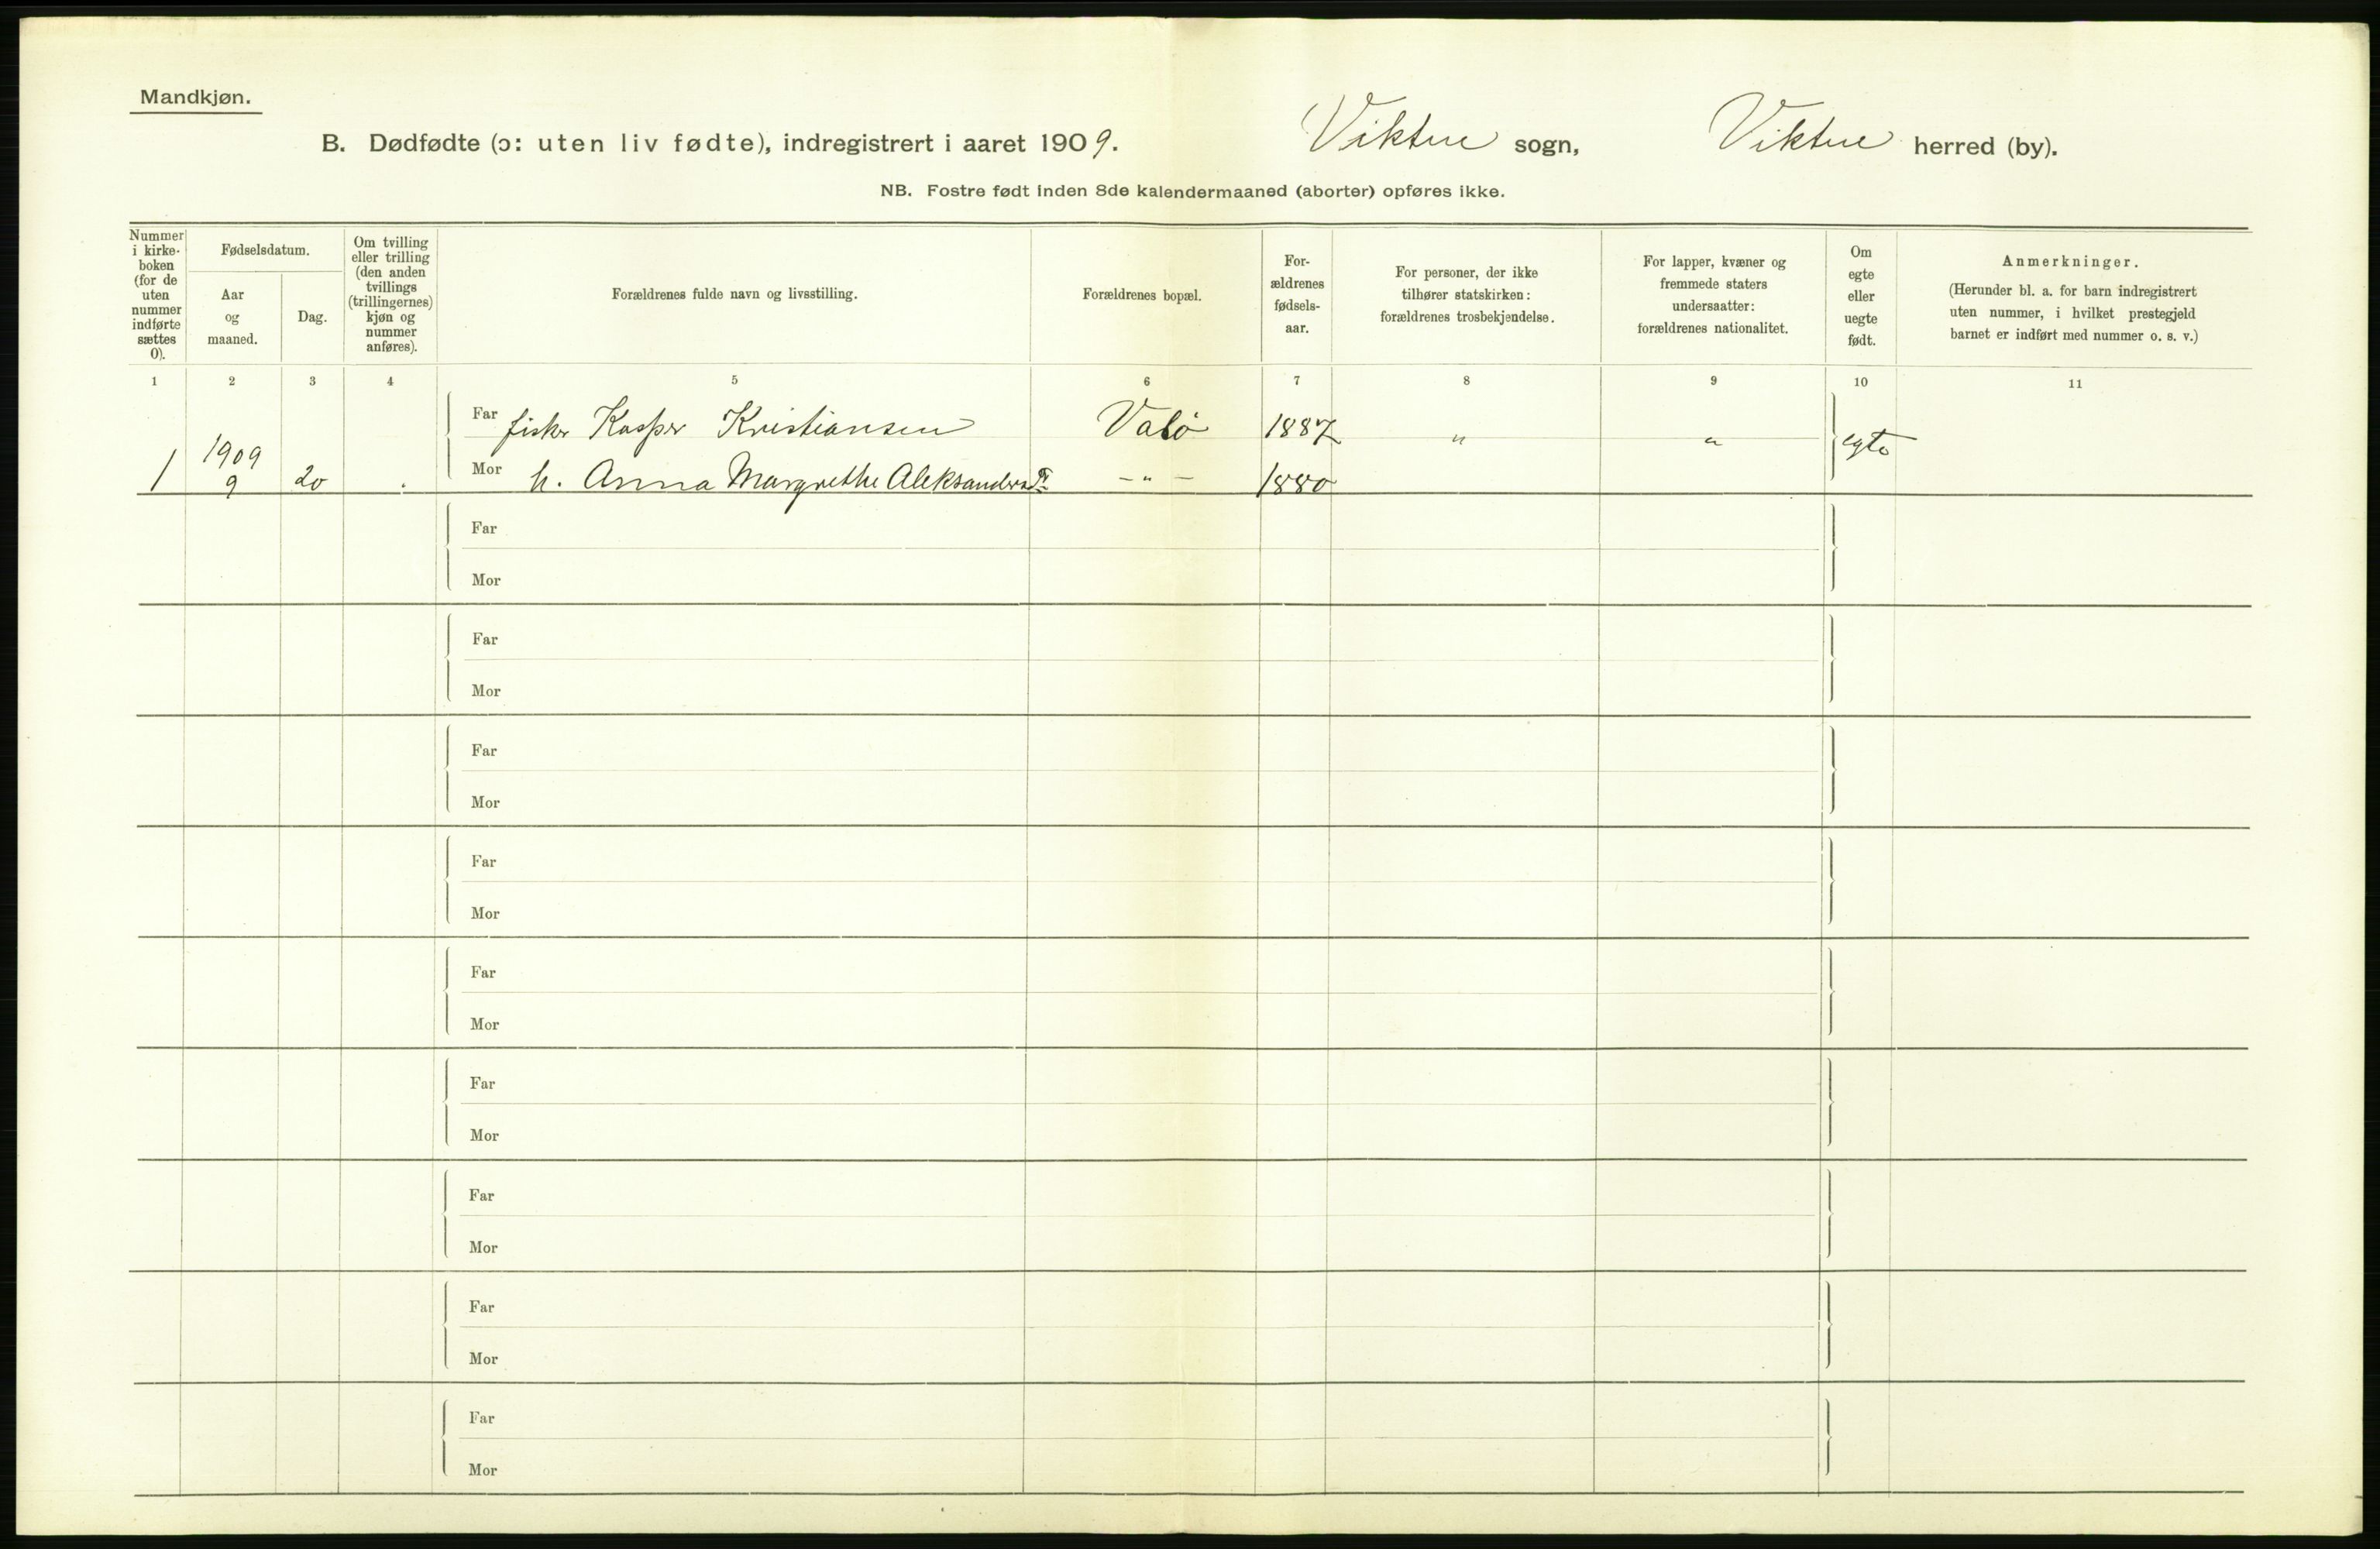 Mandkjøn.
B. Dødfødte (ɔ: uten liv fødte), indregistrert i aaret 1909. Viktue sogn, Viktue herred (by).
NB. Fostre født inden 8de kalendermaaned (aborter) opføres ikke.
Nummer
i kirke-
boken
(for de
uten
nummer
indførte
sættes
0).
Fødselsdatum.
Aar
og
maaned.
Dag.
Om tvilling
eller trilling
(den anden
tvillings
(trillingernes)
kjøn og
nummer
anføres).
Forældrenes fulde navn og livsstilling.
Forældrenes bopæl.
For-
ældrenes
fødsels-
aar.
For personer, der ikke
tilhører statskirken:
forældrenes trosbekjendelse.
For lapper, kvæner og
fremmede staters
undersaatter:
forældrenes nationalitet.
Om
egte
eller
uegte
født.
Anmerkninger.
(Herunder bl. a. for barn indregistrert
uten nummer, i hvilket prestegjeld
barnet er indført med nummer o. s. v.)
1 2 3 4 5 6 7 8 9 10 11
Far fisker Kasper Kristiansen Valø 1887 " " egte
1 1909 9 20 . Mor h. Anna Margrethe Aleksandersdr. -"- 1880
Far
Mor
Far
Mor
Far
Mor
Far
Mor
Far
Mor
Far
Mor
Far
Mor
Far
Mor
Far
Mor